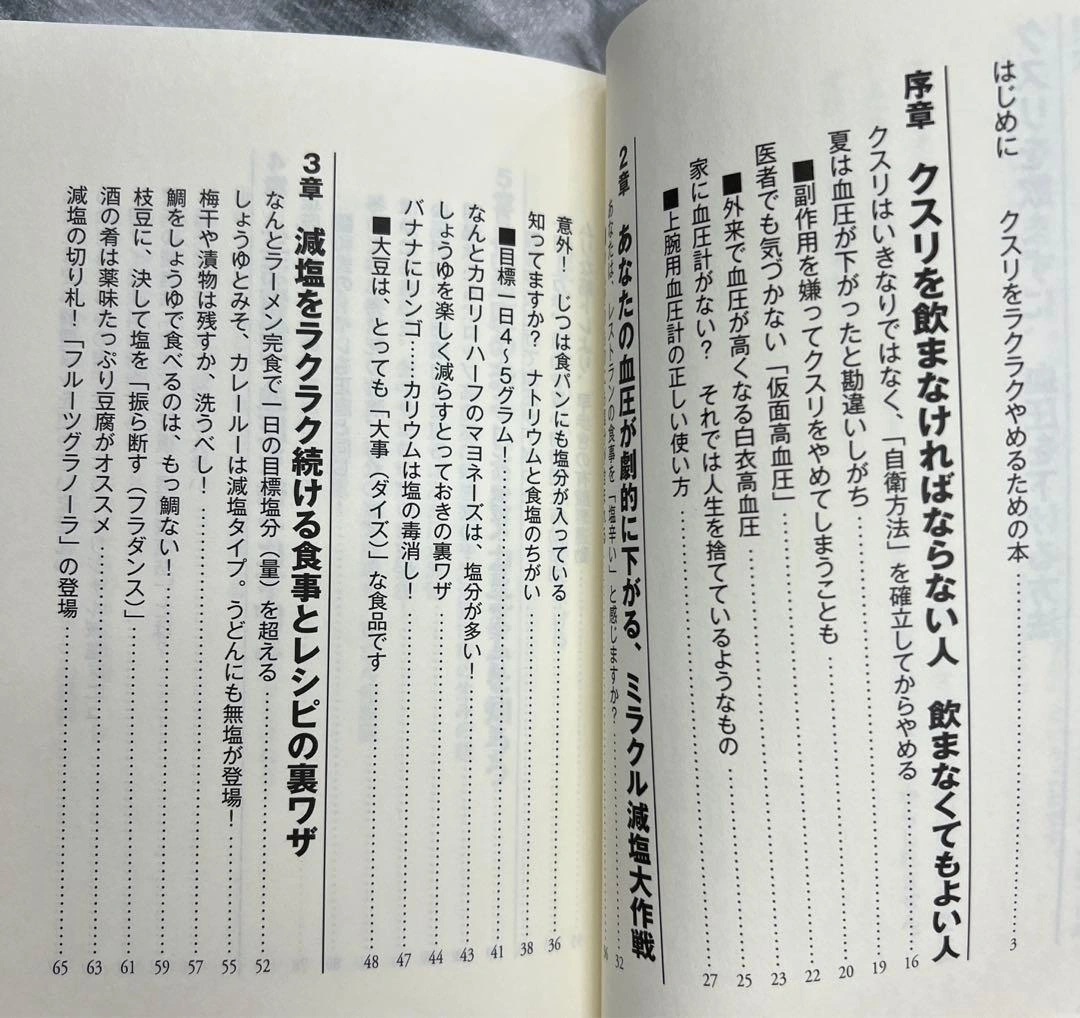 はじめに　クスリをラクラクやめるための本……3
序章　クスリを飲まなければならない人　飲まなくてもよい人
クスリはいきなりではなく、「自衛方法」を確立してからやめる……16
夏は血圧が下がったと勘違いしがち……19
■副作用を嫌ってクスリをやめてしまうことも……20
医者でも気づかない「仮面高血圧」……22
■外来で血圧が高くなる白衣高血圧……23
家に血圧計がない？　それでは人生を捨てているようなもの……25
■上腕用血圧計の正しい使い方……27
2章　あなたの血圧が劇的に下がる、ミラクル減塩大作戦
あなたは、レストランの食事を「塩辛い」と感じますか？……32
意外！　じつは食パンにも塩分が入っている……36
知ってますか？　ナトリウムと食塩のちがい……38
■目標一日4〜5グラム！……41
なんとカロリーハーフのマヨネーズは、塩分が多い！……43
しょうゆを楽しく減らすとっておきの裏ワザ……44
バナナにリンゴ……カリウムは塩の毒消し！……47
■大豆は、とっても「大事（ダイズ）」な食品です……48
3章　減塩をラクラク続ける食事とレシピの裏ワザ
なんとラーメン完食で一日の目標塩分（量）を超える……52
しょうゆとみそ、カレールーは減塩タイプ。うどんにも無塩が登場！……55
梅干や漬物は残すか、洗うべし！……57
鯛をしょうゆで食べるのは、もっ鯛ない！……59
枝豆に、決して塩を「振ら断す（フラダンス）」……61
酒の肴は薬味たっぷり豆腐がオススメ……63
減塩の切り札！「フルーツグラノーラ」の登場……65